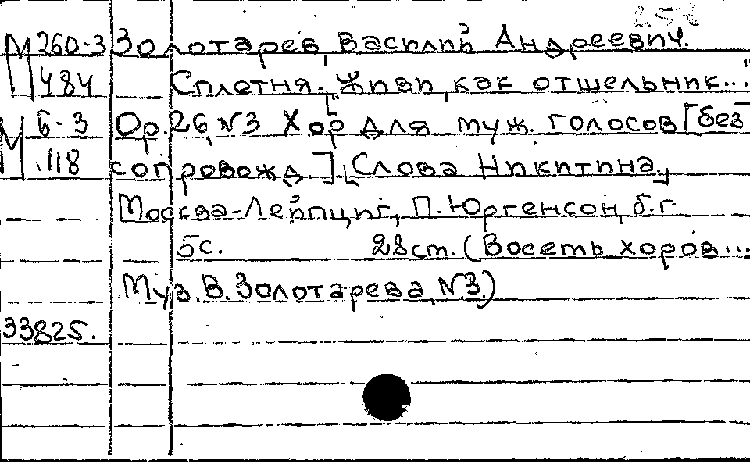 М 260-3 Золотарев, Василий Андреевич.
484 Сплетня. "Живи, как отшельник..."
М 6-3 Op. 26, №3 Хор для муж. голосов [без
118 сопровожд.]. [Слова Никитина.]
Москва-Лейпциг, П. Юргенсон, б.г.
5с. 28ст. (Восемь хоров...
Муз. В. Золотарева, №3.)
33825.